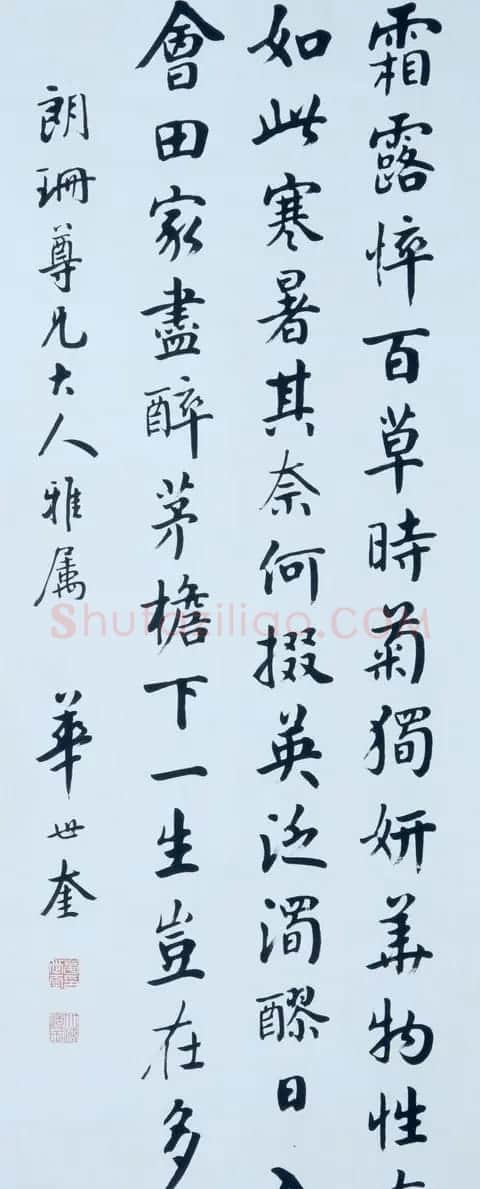 霜露悴百草時菊獨妍華物性
如此寒暑其奈何掇英泛濁醪日
會田家盡醉茅檐下一生豈在多
朗珊尊兄大人雅属
華世奎
Shufaziliao.COM